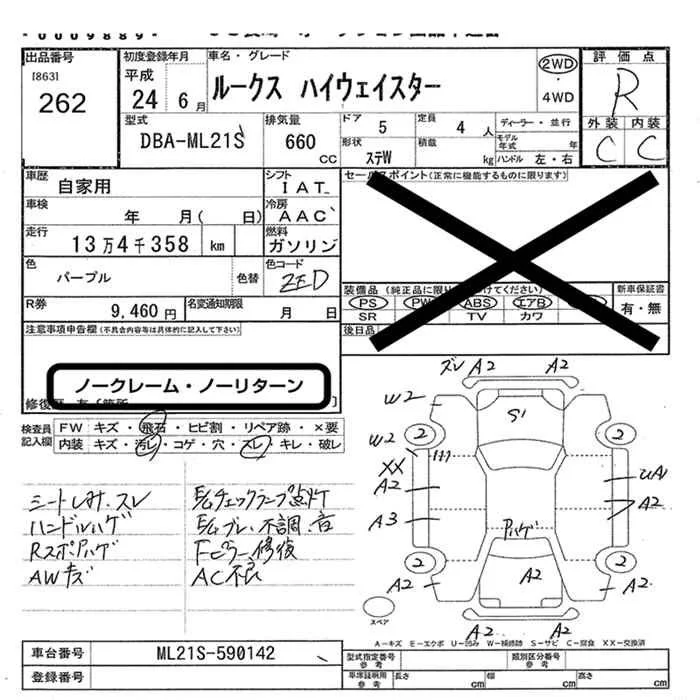 出品番号
[863]
262
初度登録年月
平成
24 6月
車名・グレード
ルークス ハイウェイスター
2WD
4WD
評価点
R
外装 内装
C C
型式
DBA-ML21S
排気量
660
CC
ドア 5
定員 4人
ディーラー・並行
モデル年式 年
形状 ステW
積載 kg
ハンドル 左・右
車歴
自家用
シフト
IAT
車検
年 月( 日)
冷房
AAC
走行
13万4千358 km
燃料
ガソリン
色
パープル
色替
色コード
ZED
R券
9,460円
名変通知期限
月 日
セールスポイント(正常に機能するものに限ります)
新車保証書
有・無
PS PW ABS エアB
SR TV カワ
後日品
注意事項申告欄(不具合内容等は具体的に記入して下さい)
ノークレーム・ノーリターン
検査員記入欄
FW キズ・飛石・ヒビ割・リペア跡・×要
内装 キズ・汚レ・コゲ・穴・スレ・キレ・破レ
シートしみ、スレ
ハンドルハゲ
RスポAハゲ
AWキズ
E/Gチェックランプ点灯
E/Gブレ、不調、音
Fピラー修復
AC不良
ズレ A2 A2
W2
S1
W2 2 2
XX
A2 UA1
A2
A3
Pハゲ
2 2
A2 A2 A2
A2 A2
スペア
A-キズ E-エクボ U-凹み W-補修跡 S-サビ C-腐食 XX-交換済
車台番号
ML21S-590142
登録番号
型式指定番号
参考
類別区分番号
参考
車庫証明用
参考
長さ cm
幅 cm
高さ cm